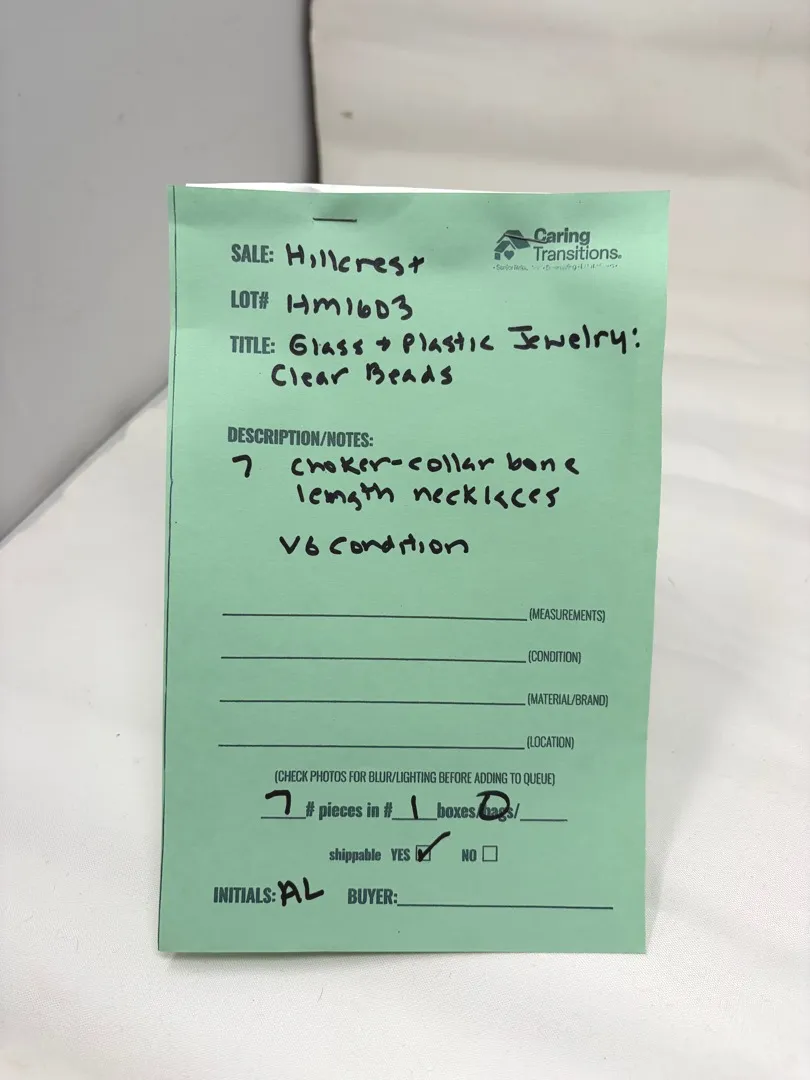 Caring
Transitions.
SALE: Hillcrest
LOT# HM1603
TITLE: Glass + Plastic Jewelry:
Clear Beads
DESCRIPTION/NOTES:
7 choker-collar bone
length necklaces
VG condition
(MEASUREMENTS)
(CONDITION)
(MATERIAL/BRAND)
(LOCATION)
(CHECK PHOTOS FOR BLUR/LIGHTING BEFORE ADDING TO QUEUE)
7 # pieces in # 1 boxes/bags/
shippable YES NO
INITIALS: AL BUYER: